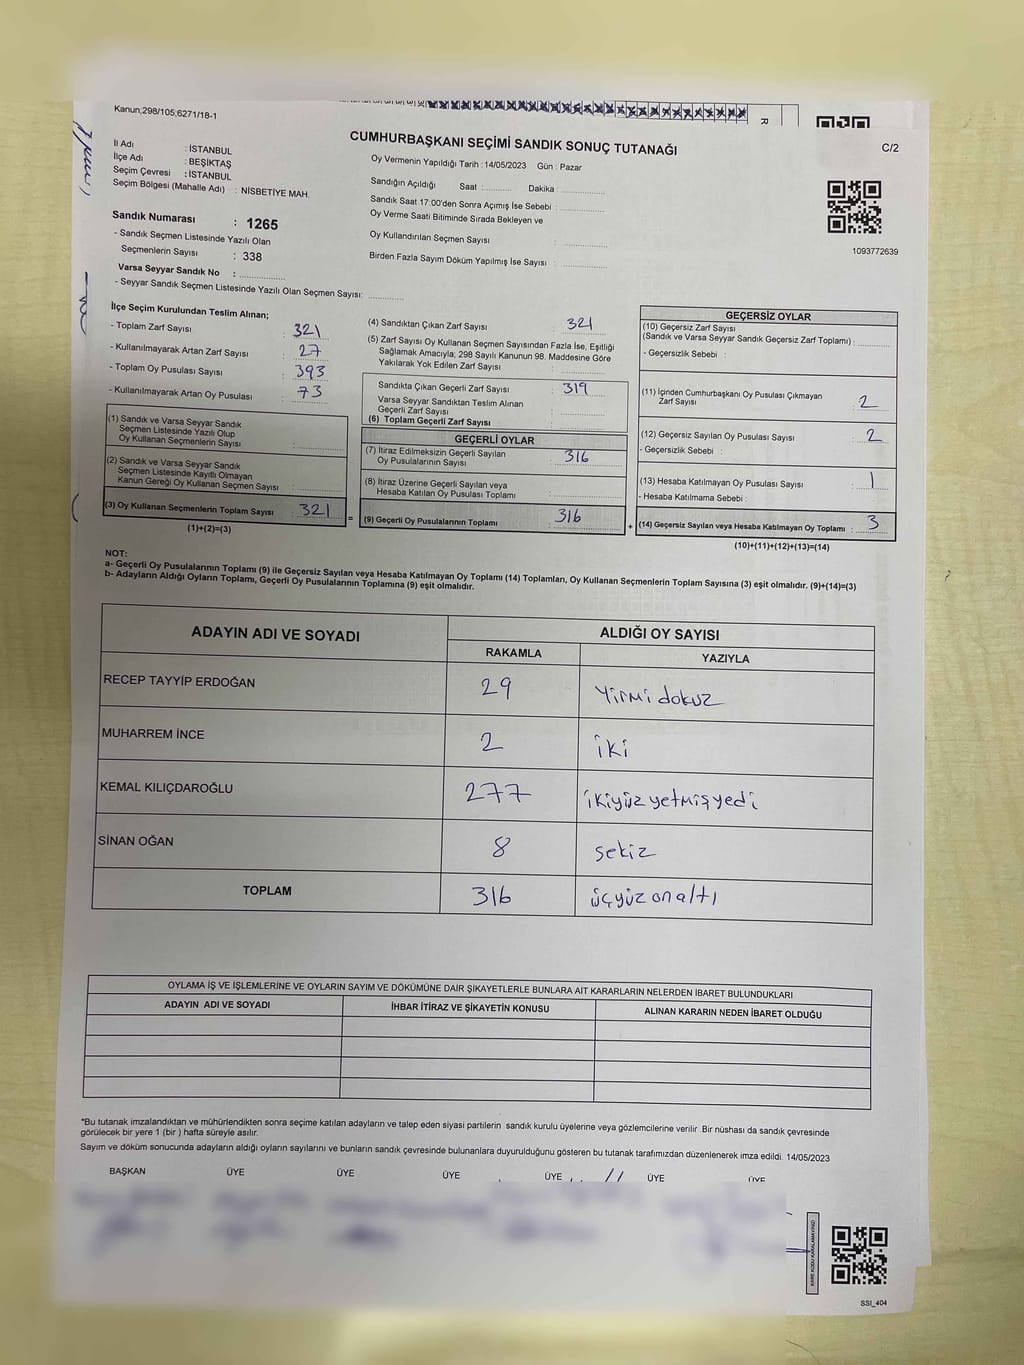 Kanun;298/105,6271/18-1
CUMHURBAŞKANI SEÇİMİ SANDIK SONUÇ TUTANAĞI
C/2
İl Adı : İSTANBUL
İlçe Adı : BEŞİKTAŞ
Seçim Çevresi : İSTANBUL
Seçim Bölgesi (Mahalle Adı) : NİSBETİYE MAH.
Sandık Numarası : 1265
- Sandık Seçmen Listesinde Yazılı Olan
Seçmenlerin Sayısı : 338
Varsa Seyyar Sandık No :
- Seyyar Sandık Seçmen Listesinde Yazılı Olan Seçmen Sayısı:
Oy Vermenin Yapıldığı Tarih :14/05/2023 Gün : Pazar
Sandığın Açıldığı Saat : Dakika :
Sandık Saat 17:00'den Sonra Açımış İse Sebebi :
Oy Verme Saati Bitiminde Sırada Bekleyen ve
Oy Kullandırılan Seçmen Sayısı :
Birden Fazla Sayım Döküm Yapılmış İse Sayısı :
1093772639
İlçe Seçim Kurulundan Teslim Alınan;
- Toplam Zarf Sayısı : 321
- Kullanılmayarak Artan Zarf Sayısı : 27
- Toplam Oy Pusulası Sayısı : 393
- Kullanılmayarak Artan Oy Pusulası : 73
(1) Sandık ve Varsa Seyyar Sandık
Seçmen Listesinde Yazılı Olup
Oy Kullanan Seçmenlerin Sayısı :
(2) Sandık ve Varsa Seyyar Sandık
Seçmen Listesinde Kayıtlı Olmayan
Kanun Gereği Oy Kullanan Seçmen Sayısı :
(3) Oy Kullanan Seçmenlerin Toplam Sayısı : 321
(1)+(2)=(3)
=
(4) Sandıktan Çıkan Zarf Sayısı : 321
(5) Zarf Sayısı Oy Kullanan Seçmen Sayısından Fazla İse, Eşitliği
Sağlamak Amacıyla, 298 Sayılı Kanunun 98. Maddesine Göre
Yakılarak Yok Edilen Zarf Sayısı :
Sandıkta Çıkan Geçerli Zarf Sayısı : 319
Varsa Seyyar Sandıktan Teslim Alınan
Geçerli Zarf Sayısı :
(6) Toplam Geçerli Zarf Sayısı :
GEÇERLİ OYLAR
(7) İtiraz Edilmeksizin Geçerli Sayılan
Oy Pusulalarının Sayısı : 316
(8) İtiraz Üzerine Geçerli Sayılan veya
Hesaba Katılan Oy Pusulası Toplamı :
(9) Geçerli Oy Pusulalarının Toplamı : 316
+
GEÇERSİZ OYLAR
(10) Geçersiz Zarf Sayısı
(Sandık ve Varsa Seyyar Sandık Geçersiz Zarf Toplamı) :
- Geçersizlik Sebebi :
(11) İçinden Cumhurbaşkanı Oy Pusulası Çıkmayan
Zarf Sayısı : 2
(12) Geçersiz Sayılan Oy Pusulası Sayısı : 2
- Geçersizlik Sebebi :
(13) Hesaba Katılmayan Oy Pusulası Sayısı : 1
- Hesaba Katılmama Sebebi :
(14) Geçersiz Sayılan veya Hesaba Katılmayan Oy Toplamı : 3
(10)+(11)+(12)+(13)=(14)
NOT:
a- Geçerli Oy Pusulalarının Toplamı (9) ile Geçersiz Sayılan veya Hesaba Katılmayan Oy Toplamı (14) Toplamları, Oy Kullanan Seçmenlerin Toplam Sayısına (3) eşit olmalıdır. (9)+(14)=(3)
b- Adayların Aldığı Oyların Toplamı, Geçerli Oy Pusulalarının Toplamına (9) eşit olmalıdır.
ADAYIN ADI VE SOYADI
ALDIĞI OY SAYISI
RAKAMLA YAZIYLA
RECEP TAYYİP ERDOĞAN 29 Yirmi dokuz
MUHARREM İNCE 2 iki
KEMAL KILIÇDAROĞLU 277 ikiyüz yetmişyedi
SİNAN OĞAN 8 sekiz
TOPLAM 316 üçyüz onaltı
OYLAMA İŞ VE İŞLEMLERİNE VE OYLARIN SAYIM VE DÖKÜMÜNE DAİR ŞİKAYETLERLE BUNLARA AİT KARARLARIN NELERDEN İBARET BULUNDUKLARI
ADAYIN ADI VE SOYADI İHBAR İTİRAZ VE ŞİKAYETİN KONUSU ALINAN KARARIN NEDEN İBARET OLDUĞU
*Bu tutanak imzalandıktan ve mühürlendikten sonra seçime katılan adayların ve talep eden siyasi partilerin sandık kurulu üyelerine veya gözlemcilerine verilir. Bir nüshası da sandık çevresinde
görülecek bir yere 1 (bir ) hafta süreyle asılır.
Sayım ve döküm sonucunda adayların aldığı oyların sayılarını ve bunların sandık çevresinde bulunanlara duyurulduğunu gösteren bu tutanak tarafımızdan düzenlenerek imza edildi. 14/05/2023
BAŞKAN ÜYE ÜYE ÜYE ÜYE ÜYE ÜYE
KARE KODU KARALAMAYINIZ!
SSI_404